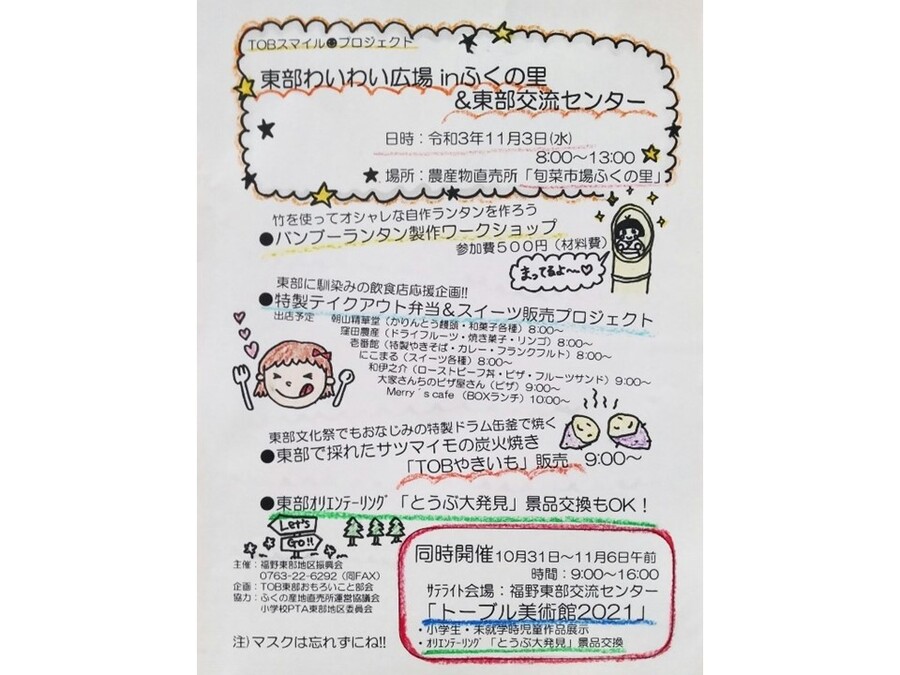 TOBスマイル☻プロジェクト
東部わいわい広場 inふくの里
&東部交流センター
日時：令和3年11月3日(水)
8:00～13:00
場所：農産物直売所「旬菜市場ふくの里」
竹を使ってオシャレな自作ランタンを作ろう
●バンブーランタン製作ワークショップ
参加費500円（材料費）
まってるよ～♡
東部に馴染みの飲食店応援企画!!
●特製テイクアウト弁当&スイーツ販売プロジェクト
出店予定 朝山精華堂（かりんとう饅頭・和菓子各種）8:00～
窪田農産（ドライフルーツ・焼き菓子・リンゴ）8:00～
壱番館（特製やきそば・カレー・フランクフルト）8:00～
にこまる（スイーツ各種）8:00～
和伊之介（ローストビーフ丼・ピザ・フルーツサンド）9:00～
大家さんちのピザ屋さん（ピザ）9:00～
Merry´s cafe（BOXランチ）10:00～
東部文化祭でもおなじみの特製ドラム缶釜で焼く
●東部で採れたサツマイモの炭火焼き
「TOBやきいも」販売 9:00～
●東部ｵﾘｴﾝﾃｰﾘﾝｸﾞ「とうぶ大発見」景品交換もOK！
Let's
Go!!
主催：福野東部地区振興会
0763-22-6292（同FAX）
企画：TOB東部おもろいこと部会
協力：ふくの産地直売所運営協議会
小学校PTA東部地区委員会
注)マスクは忘れずにね!!
同時開催 10月31日～11月6日午前
時間：9:00～16:00
ｻﾃﾗｲﾄ会場：福野東部交流センター
「トーブル美術館2021」
・小学生・未就学時児童作品展示
・ｵﾘｴﾝﾃｰﾘﾝｸﾞ「とうぶ大発見」景品交換